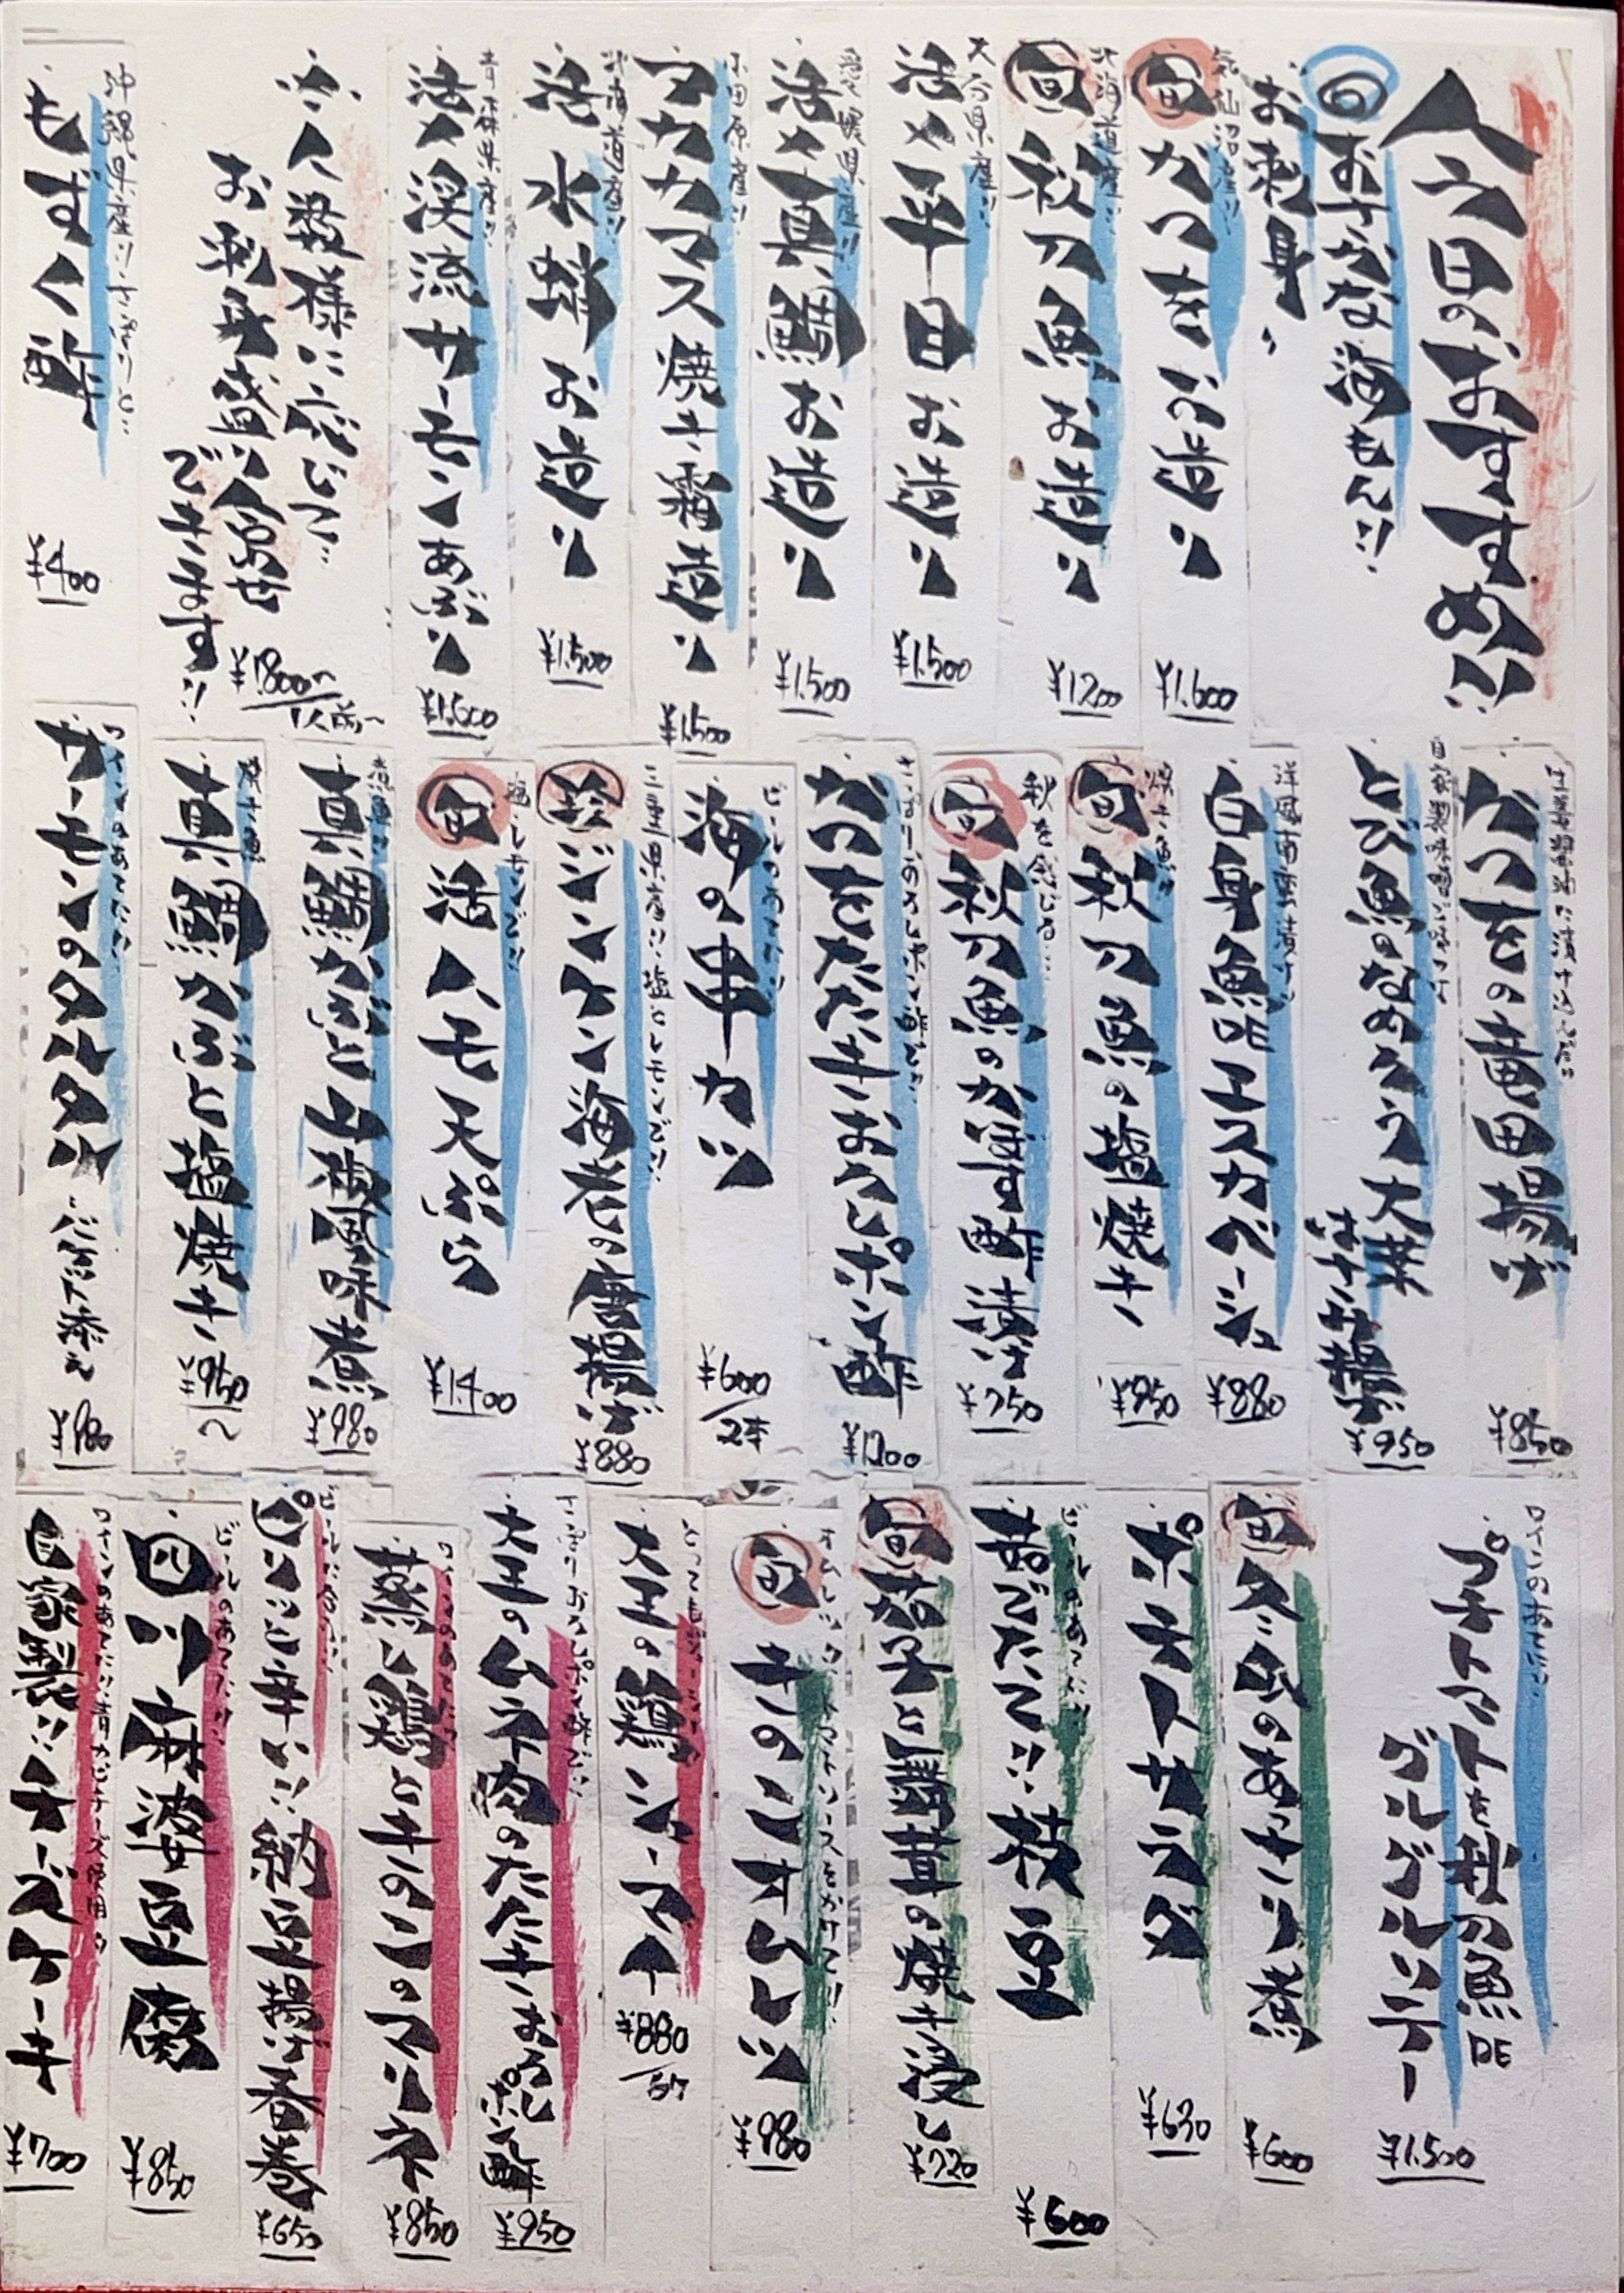 今日のおすすめ!!
お手がるな海もん!!
お刺身
気仙沼産!!
旬 かつをお造り
¥1,600
北海道産!!
旬 秋刀魚お造り
¥1200
大分県産!!
活〆平目お造り
¥1,500
愛媛県産!!
活〆真鯛お造り
¥1,500
小田原産!!
アカカマス焼き霜造り
¥1,500
北海道産!!
活水蛸お造り
¥1,500
青森県産!!
活〆渓流サーモンあぶり
¥1,600
人数様に応じて…
お刺身盛り合わせ
できます!!
¥1,800〜
1人前〜
沖縄県産!!さっぱりと…
もずく酢
¥400
生姜醤油に漬け込んだ!!
かつをの竜田揚げ
¥850
自家製味噌で味つけ
とび魚のなめろう大葉
はさみ揚げ
¥950
洋風南蛮漬け!!
白身魚のエスカベーシュ
¥880
焼き魚!!
旬 秋刀魚の塩焼き
¥950
秋を感じる…
旬 秋刀魚のかぼす酢漬け
¥750
さっぱりおろしポン酢で!!
かつをたたきおろしポン酢
¥1200
ビールのあてに!!
海の串カツ
¥600
2本
三重県産!!塩とレモンで!!
珍 ジンケン海老の唐揚げ
¥880
塩とレモンで!!
旬 活ハモ天ぷら
¥1400
煮魚!!
真鯛かぶと山椒風味煮
¥980
焼き魚!!
真鯛かぶと塩焼き
¥950〜
ワインのあてに!!
サーモンのタルタル バケット添え
¥980
ワインのあてに!!
プチトマトを秋刀魚DE
グルグルソテー
¥1,500
旬 冬瓜のあっさり煮
¥600
ポテトサラダ
¥630
ビールのあてに!!
茹でたて!!枝豆
¥600
旬 茄子と舞茸の焼き浸し
¥720
オムレツに、トマトソースをかけて!!
旬 きのこオムレツ
¥980
とってもジューシー!!
大王の鶏シューマイ
¥880
5ヶ
さっぱりおろしポン酢で!!
大王のムネ肉のたたきおろしポン酢
¥950
ワインのあてに!!
蒸し鶏ときのこのマリネ
¥850
ビールに合う!!
ピリッと辛い!!納豆揚げ春巻
¥650
ビールのあてに!!
四川麻婆豆腐
¥850
ワインのあてに!!青カビチーズ使用
自家製!!チーズケーキ
¥700